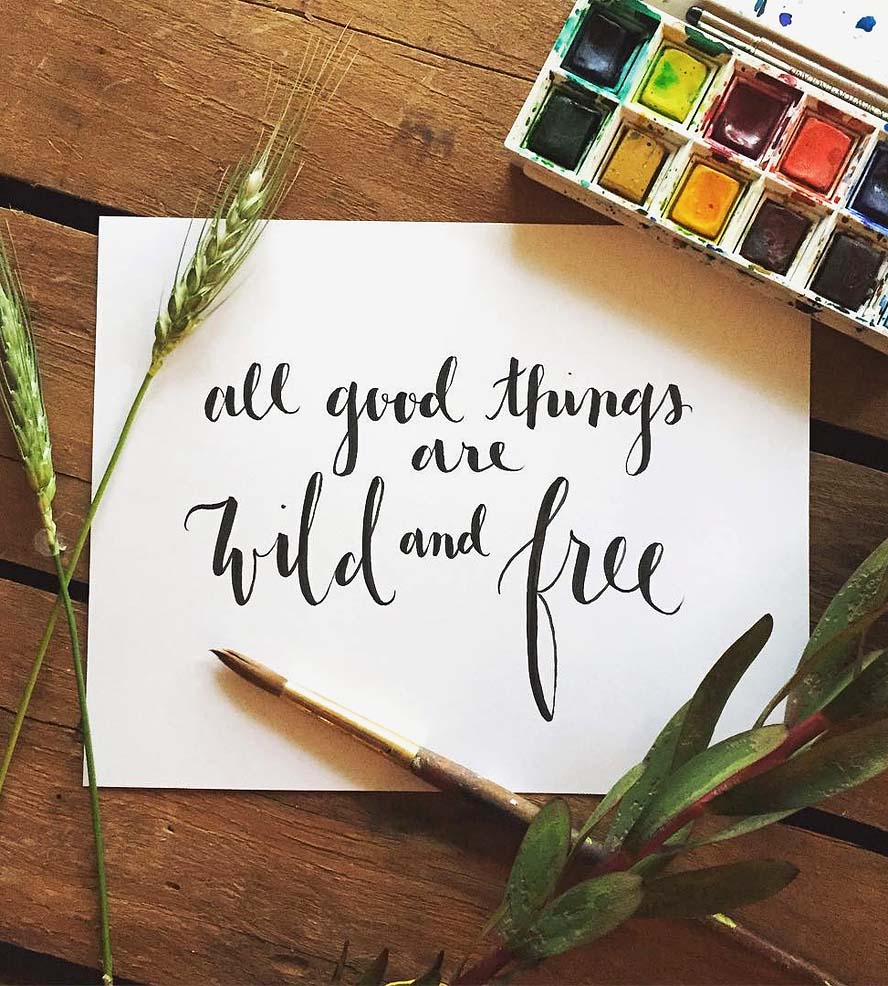 all good things
are
Wild and free